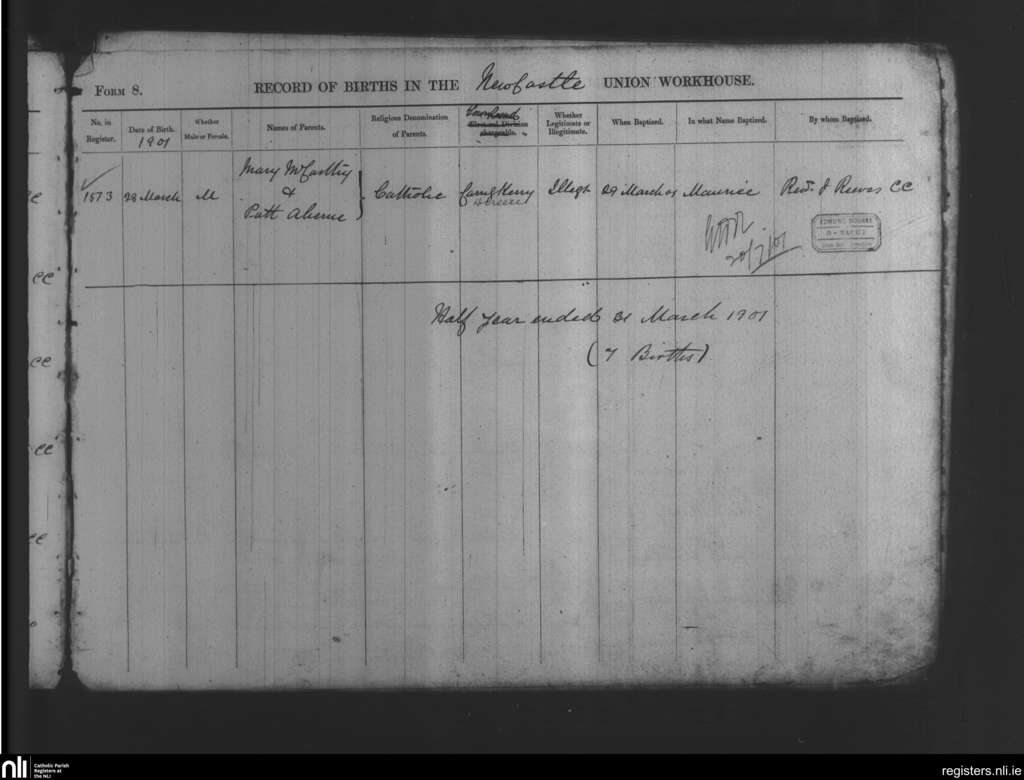 FORM 8.
RECORD OF BIRTHS IN THE Newcastle UNION WORKHOUSE.
No. in Register.
Date of Birth. 1901
Whether Male or Female.
Names of Parents.
Religious Denomination of Parents.
Electoral Division chargeable.
Whether Legitimate or Illegitimate.
When Baptized.
In what Name Baptized.
By whom Baptized.
1573
28 March
M
Mary McCarthy
&
Patt Aherne
Catholic
Illegt
29 March 01
Maurice
Revd. J Reeves CC
20/7/01
Half year ended 31 March 1901
(7 Births)
CC
CC
CC
CC
nli
Catholic Parish
Registers at
the NLI
registers.nli.ie